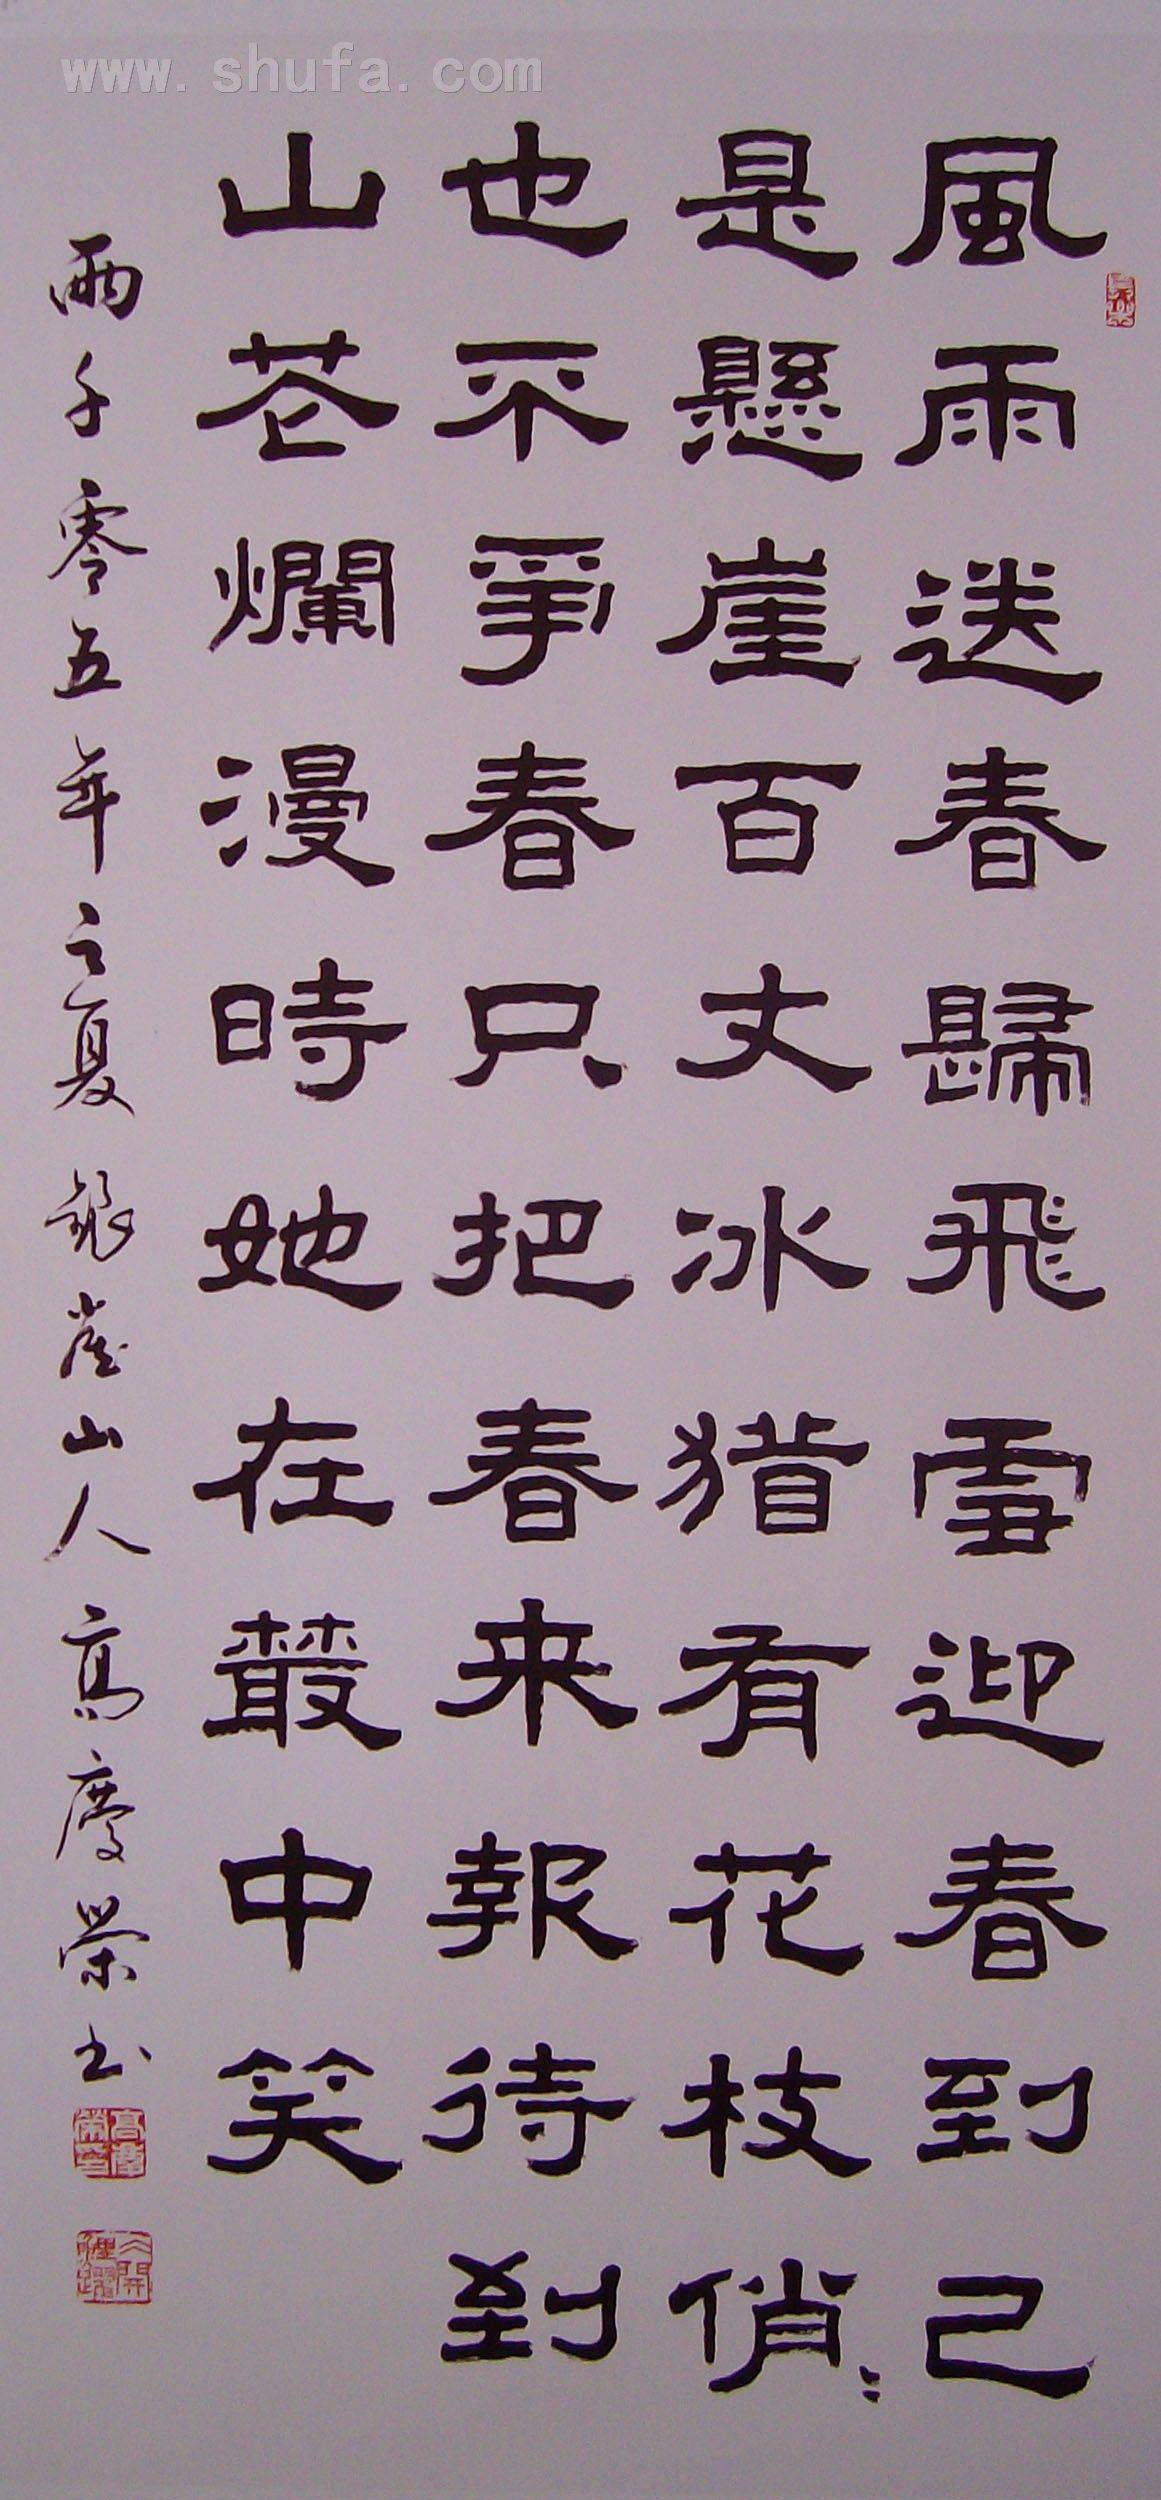 www.shufa.com
風雨送春歸飛雪迎春到已
是懸崖百丈冰猶有花枝俏
也不爭春只把春来報待到
山花爛漫時她在叢中笑
兩千零五年之夏 崖山人高慶榮书
高慶榮印